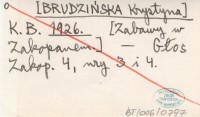 [BRUDZIŃSKA Krystyna]
K. B. 1926. [Zabawy w
Zakopanem.] — Głos
Zakop. 4, nry 3 i 4.
BT/006/0797